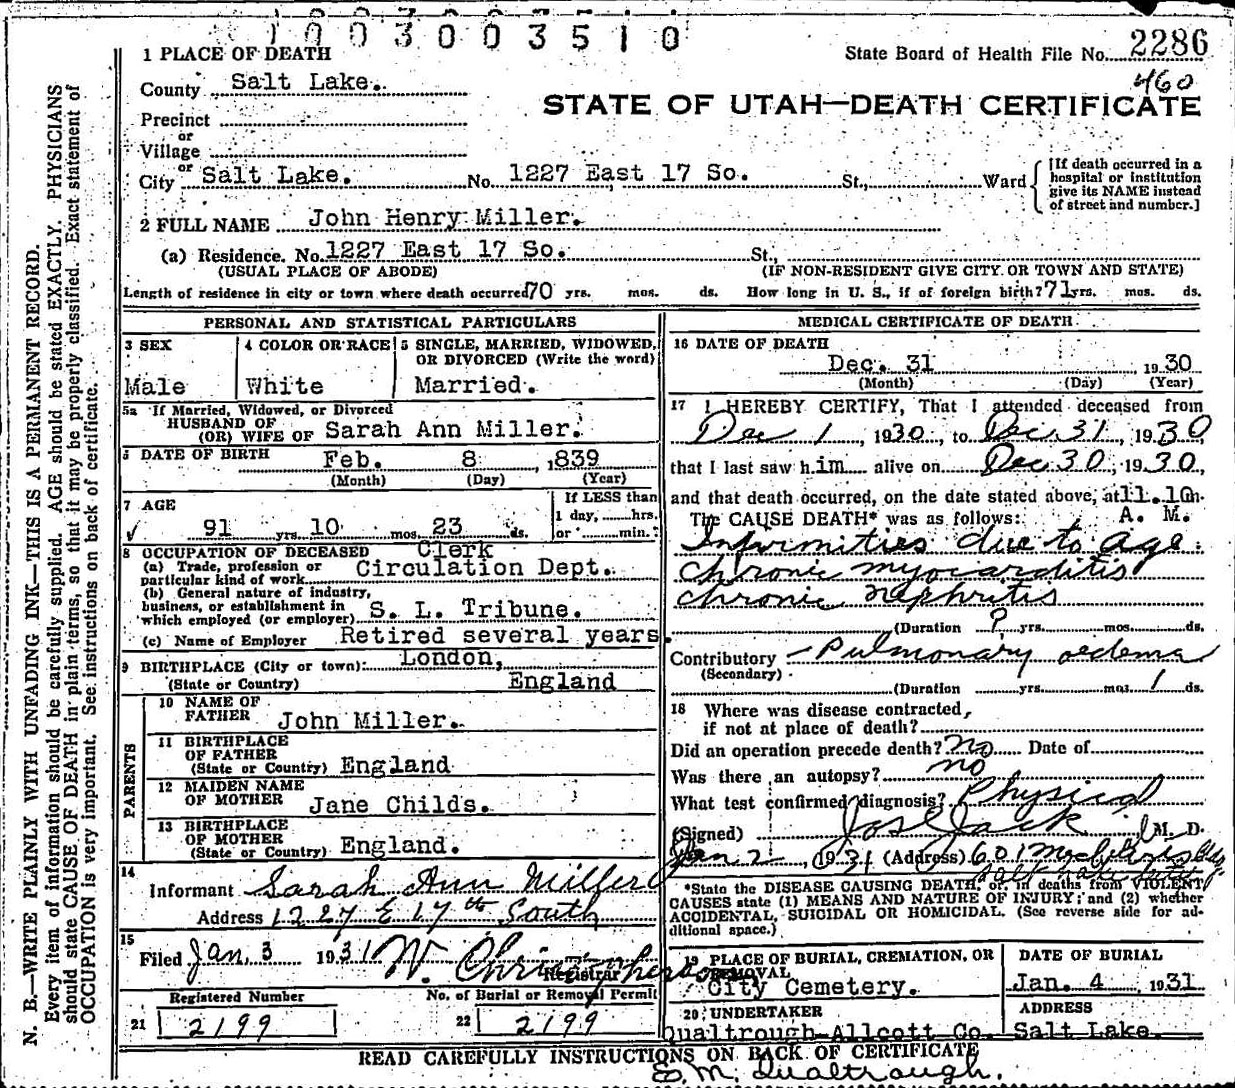 1003003510
State Board of Health File No. 2286
460
STATE OF UTAH—DEATH CERTIFICATE
1 PLACE OF DEATH
County Salt Lake.
Precinct
or
Village
or
City Salt Lake. No. 1227 East 17 So. St., Ward
[If death occurred in a
hospital or institution
give its NAME instead
of street and number.]
2 FULL NAME John Henry Miller.
(a) Residence. No. 1227 East 17 So. St.,
(USUAL PLACE OF ABODE) (IF NON-RESIDENT GIVE CITY OR TOWN AND STATE)
Length of residence in city or town where death occurred 70 yrs. mos. ds. How long in U. S., if of foreign birth? 71 yrs. mos. ds.
PERSONAL AND STATISTICAL PARTICULARS
3 SEX
Male
4 COLOR OR RACE
White
5 SINGLE, MARRIED, WIDOWED,
OR DIVORCED (Write the word)
Married.
5a If Married, Widowed, or Divorced
HUSBAND OF
(OR) WIFE OF Sarah Ann Miller.
6 DATE OF BIRTH Feb. 8, 1839
(Month) (Day) (Year)
7 AGE
✓ 91 yrs. 10 mos. 23 ds.
If LESS than
1 day, hrs.
or min.
8 OCCUPATION OF DECEASED Clerk
(a) Trade, profession or
particular kind of work Circulation Dept.
(b) General nature of industry,
business, or establishment in
which employed (or employer) S. L. Tribune.
(c) Name of Employer Retired several years.
9 BIRTHPLACE (City or town) London,
(State or Country) England
PARENTS
10 NAME OF
FATHER John Miller.
11 BIRTHPLACE
OF FATHER
(State or Country) England
12 MAIDEN NAME
OF MOTHER Jane Childs.
13 BIRTHPLACE
OF MOTHER
(State or Country) England.
14
Informant Sarah Ann Miller
Address 1227 E 17th South
15
Filed Jan. 3 1931 W. Christopherson
Registrar
Registered Number
21 2199
No. of Burial or Removal Permit
22 2199
MEDICAL CERTIFICATE OF DEATH
16 DATE OF DEATH
Dec. 31 1930
(Month) (Day) (Year)
17 I HEREBY CERTIFY, That I attended deceased from
Dec 1, 1930, to Dec 31, 1930,
that I last saw him alive on Dec 30, 1930,
and that death occurred, on the date stated above, at 11.10 m.
A. M.
The CAUSE DEATH* was as follows:
Infirmities due to age.
chronic myocarditis
chronic nephritis
(Duration ? yrs. mos. ds.
Contributory Pulmonary oedema
(Secondary)
(Duration yrs. mos. 1 ds.
18 Where was disease contracted,
if not at place of death?
Did an operation precede death? no Date of
Was there an autopsy? no
What test confirmed diagnosis? Physical
(Signed) Jos E Jack M. D.
Jan 2, 1931 (Address) 601 McIntyre Bldg
Salt Lake City
*State the DISEASE CAUSING DEATH, or, in deaths from VIOLENT
CAUSES state (1) MEANS AND NATURE OF INJURY; and (2) whether
ACCIDENTAL, SUICIDAL OR HOMICIDAL. (See reverse side for ad-
ditional space.)
19 PLACE OF BURIAL, CREMATION, OR
REMOVAL
City Cemetery.
DATE OF BURIAL
Jan. 4 1931
20 UNDERTAKER
Qualtrough-Allcott Co.
ADDRESS
Salt Lake.
READ CAREFULLY INSTRUCTIONS ON BACK OF CERTIFICATE
E. M. Qualtrough.
N. B.—WRITE PLAINLY WITH UNFADING INK—THIS IS A PERMANENT RECORD.
Every item of information should be carefully supplied. AGE should be stated EXACTLY. PHYSICIANS
should state CAUSE OF DEATH in plain terms, so that it may be properly classified. Exact statement of
OCCUPATION is very important. See instructions on back of certificate.